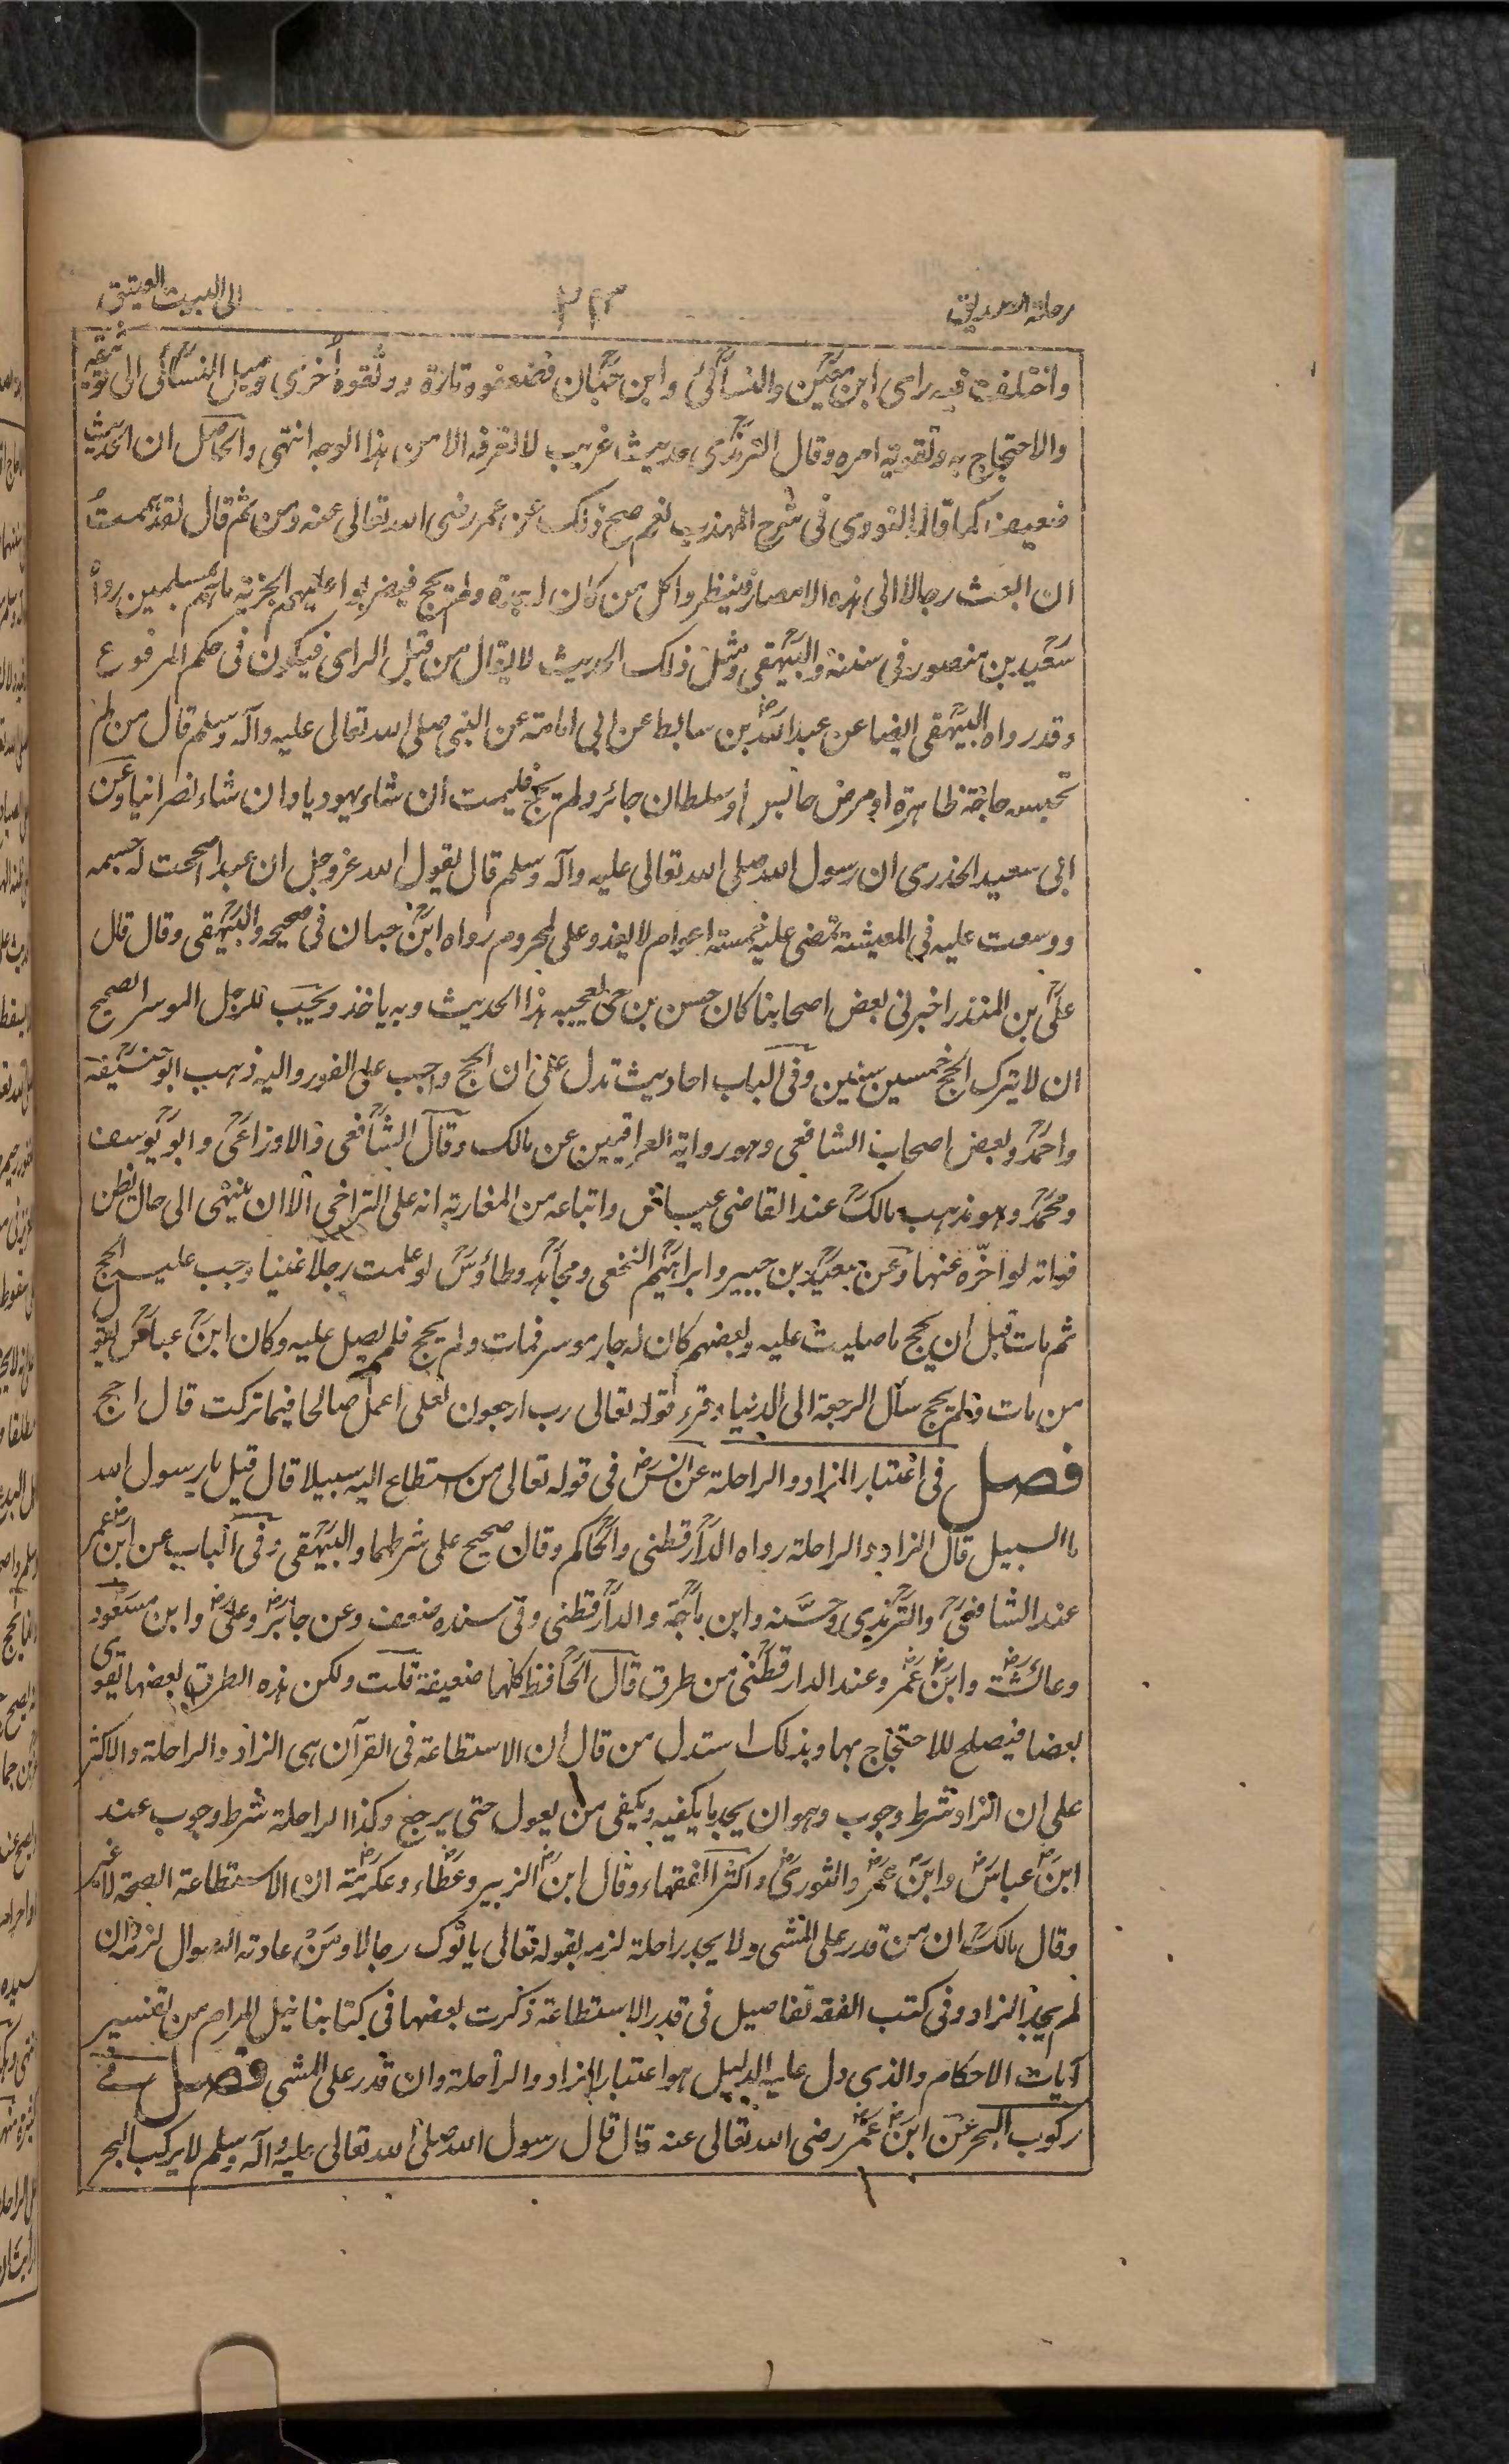 رحلة الصديق
٢٣
الى البيت العتيق
واختلف فيه راى ابن معين والنسائى وابن حبان فضعفوه تارة ووثقوه أخرى وميل النسائى الى توثيقه
والاحتجاج به وتقوية امره وقال الترمذى حديث غريب لا نعرفه الا من هذا الوجه انتهى والحاصل ان الحديث
ضعيف كما قال النووى فى شرح المهذب نعم صح ذلك عن عمر رضى الله تعالى عنه ومن ثم قال لقد هممت
ان ابعث رجالا الى هذه الامصار فينظروا كل من كان له جدة ولم يحج فيضربوا عليهم الجزية ما هم بمسلمين رواه
سعيد بن منصور فى سننه والبيهقى ومثل ذلك الحديث لا يقال من قبل الراى فيكون فى حكم المرفوع
وقد رواه البيهقى ايضا عن عبد الله بن سابط عن ابى امامة عن النبى صلى الله تعالى عليه وآله وسلم قال من لم
تحبسه حاجة ظاهرة او مرض حابس او سلطان جائر ولم يحج فليمت ان شاء يهوديا وان شاء نصرانيا وعن
ابى سعيد الخذرى ان رسول الله صلى الله تعالى عليه وآله وسلم قال يقول الله عز وجل ان عبدا صححت له جسمه
ووسعت عليه فى المعيشة تمضى عليه خمسة اعوام لا يفد وعلى لمحروم رواه ابن حبان فى صحيحه والبيهقى وقال قال
على بن المنذر اخبرنى بعض اصحابنا كان حسن بن حى يعجبه هذا الحديث وبه ياخذ ويحب للرجل الموسر الصحيح
ان لا يترك الحج خمسين سنين وفى الباب احاديث تدل على ان الحج واجب على الفور واليه ذهب ابو حنيفة
واحمد وبعض اصحاب الشافعى وهو رواية العراقيين عن مالك وقال الشافعى والاوزاعى وابو يوسف
ومحمد وهو مذهب مالك عند القاضى عياض واتباعه من المغاربة انه على التراخى الا ان ينتهى الى حال يظن
فواته لو اخّره عنها وعن سعيد بن جبير وابراهيم النخعى ومجاهد وطاؤس لو علمت رجلا غنيا وجب عليه الحج
ثم مات قبل ان يحج ما صليت عليه وبعضهم كان له جار موسر فمات ولم يحج فلم يصل عليه وكان ابن عباس يقول
من مات ولم يحج سأل الرجعة الى الدنيا وقرء قوله تعالى رب ارجعون لعلى اعمل صالحا فيما تركت قال احج
فصل فى اعتبار الزاد والراحلة عن انس فى قوله تعالى من استطاع اليه سبيلا قال قيل يا رسول الله
ما السبيل قال الزاد والراحلة رواه الدارقطنى والحاكم وقال صحيح على شرطهما والبيهقى وفى الباب عن ابن عمر
عند الشافعى والترمذى وحسّنه وابن ماجة والدارقطنى وفى سنده ضعف وعن جابر وعلى وابن مسعود
وعائشة وابن عمر وعند الدارقطنى من طرق قال الحافظ كلها ضعيفة قلت ولكن هذه الطرق بعضها يقوى
بعضا فيصلح للاحتجاج بها وبذلك استدل من قال ان الاستطاعة فى القرآن هى الزاد والراحلة والاكثر
على ان الزاد شرط وجوب وهو ان يجد ما يكفيه ويكفى من يعول حتى يرجع وكذا الراحلة شرط وجوب عند
ابن عباس وابن عمر والثورى واكثر الفقهاء وقال ابن الزبير وعطاء وعكرمة ان الاستطاعة الصحة لا غير
وقال مالك ان من قدر على المشى ولا يجد راحلة لزمه لقوله تعالى ياتوك رجالا ومن عادته السوال لزمه ان
لم يجد الزاد وفى كتب الفقه تفاصيل فى قدر الاستطاعة ذكرت بعضها فى كتابنا نيل المرام من تفسير
آيات الاحكام والذى دل عليه الدليل هو اعتبار الزاد والراحلة وان قدر على المشى فصل فے
ركوب البحر عن ابن عمر رضى الله تعالى عنه قال قال رسول الله صلى الله تعالى عليه وآله وسلم لا يركب البحر